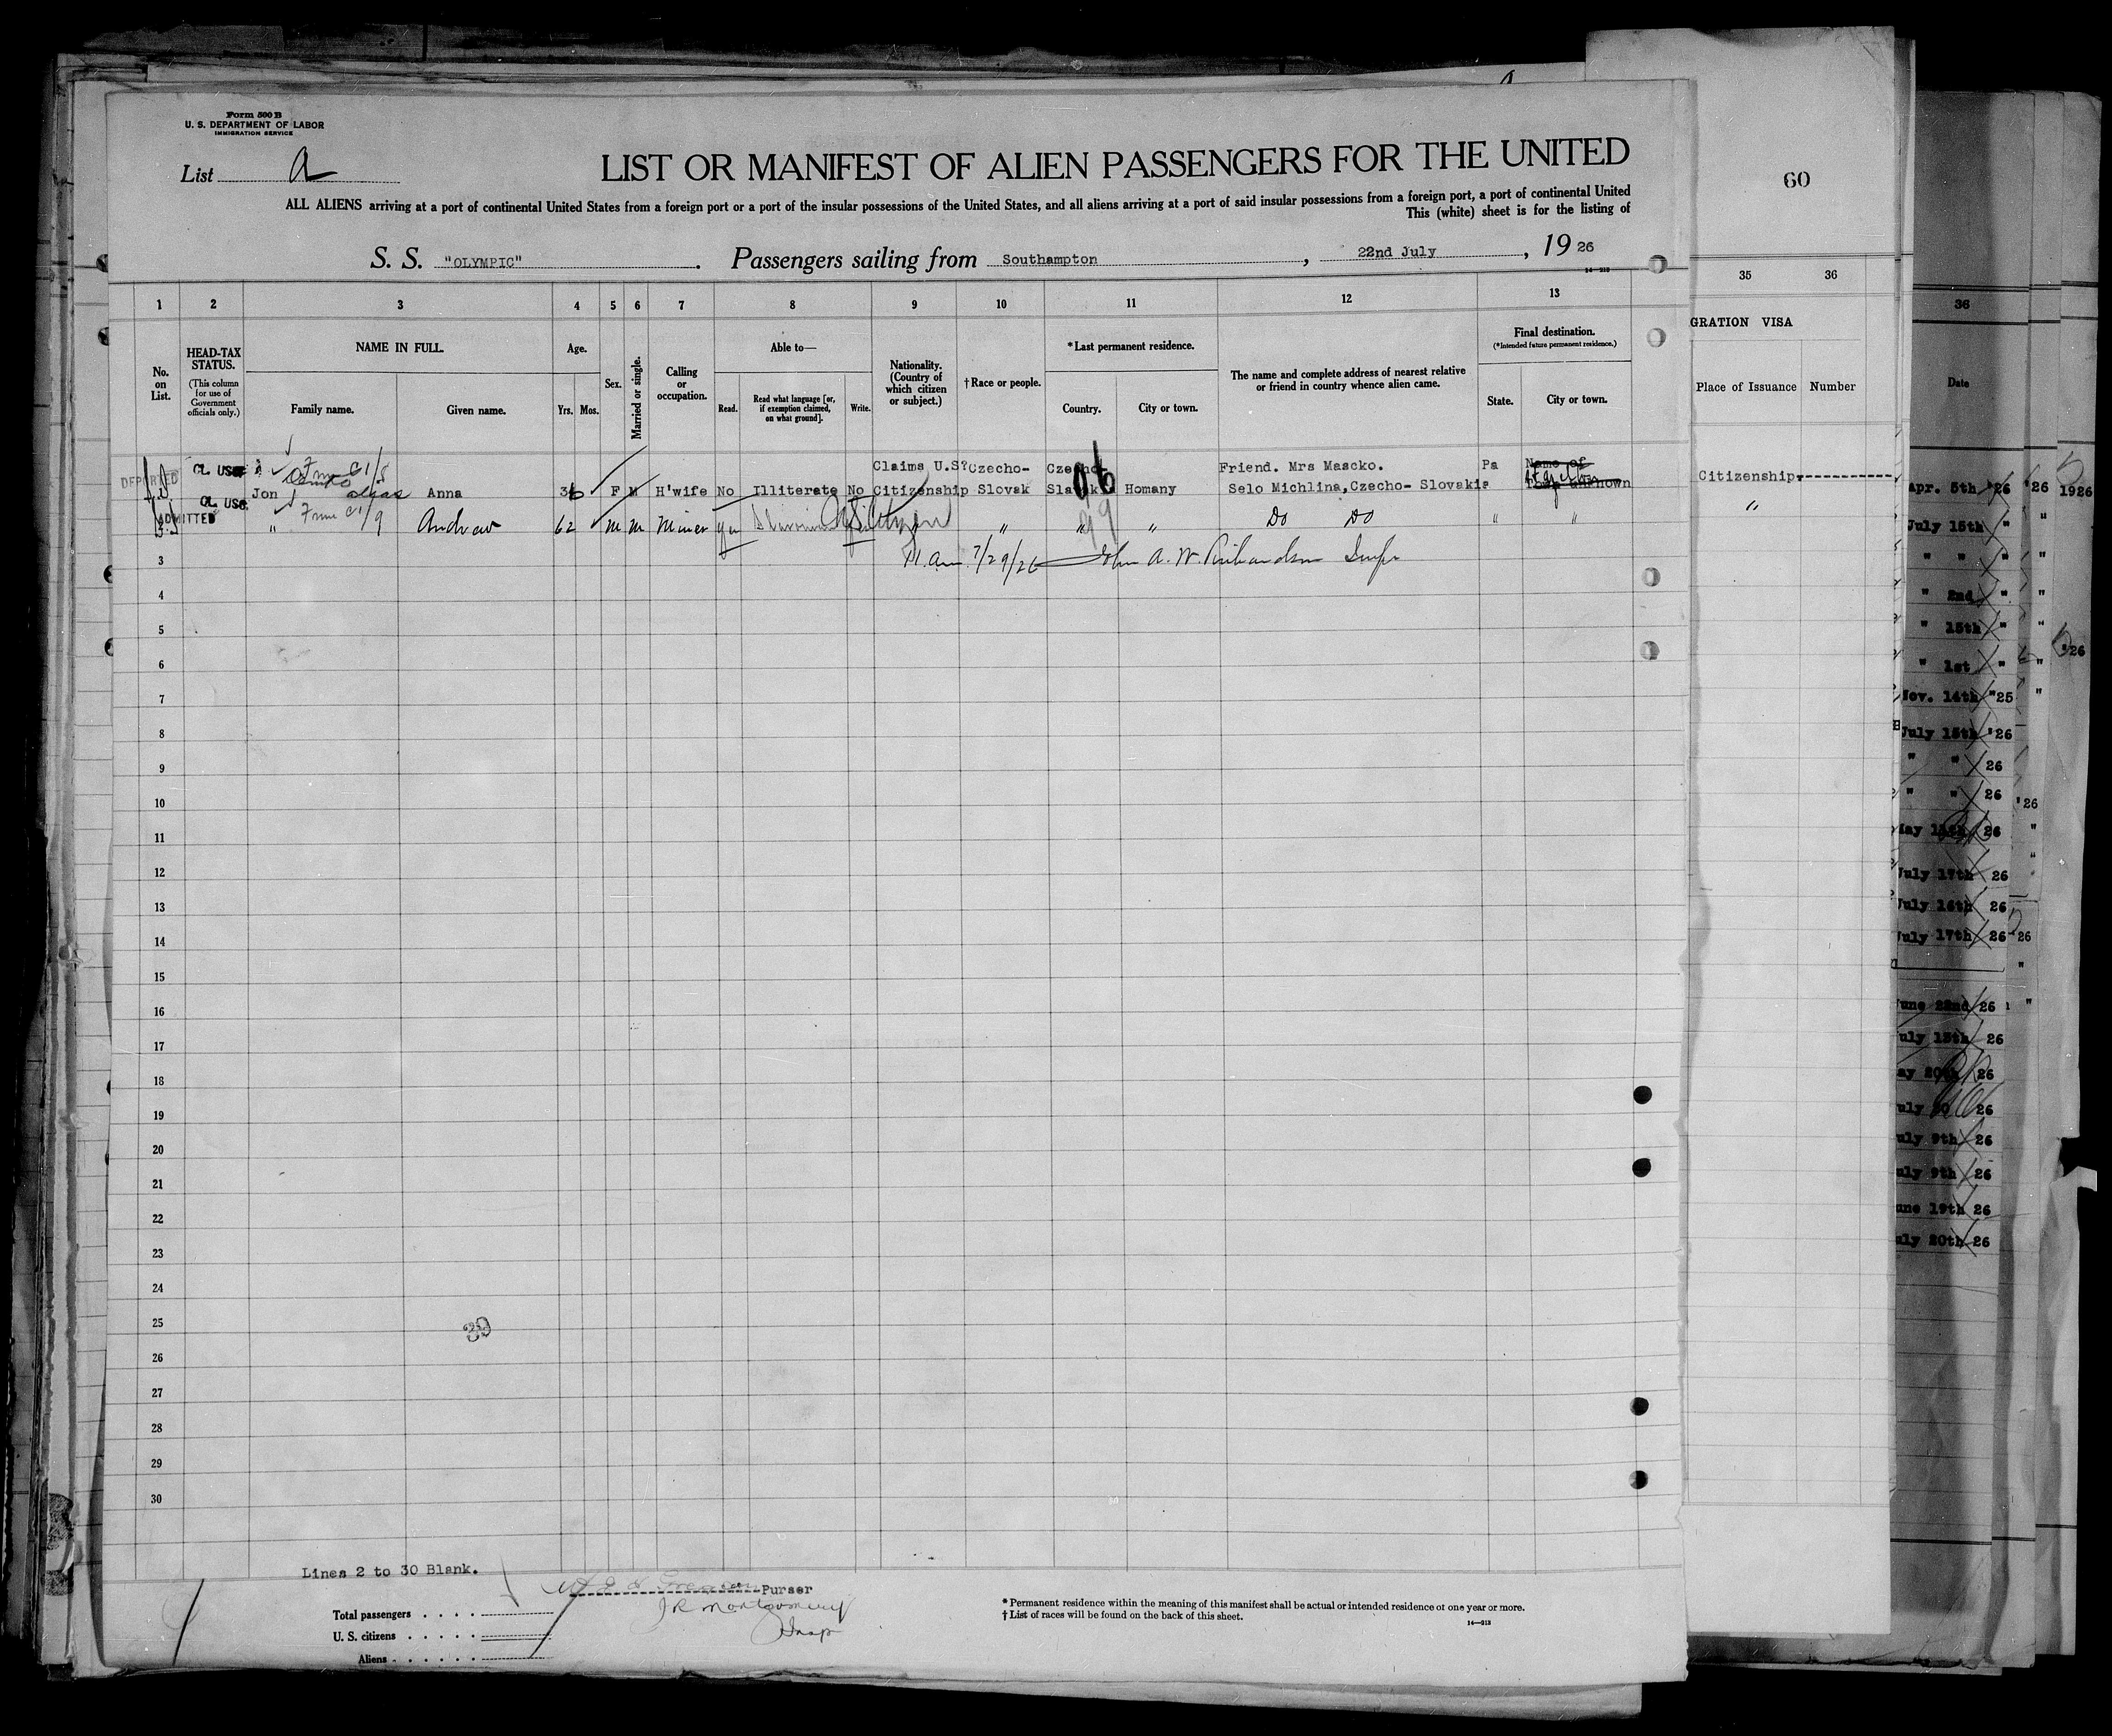 Form 500 B
U. S. DEPARTMENT OF LABOR
IMMIGRATION SERVICE
List a
LIST OR MANIFEST OF ALIEN PASSENGERS FOR THE UNITED
60
ALL ALIENS arriving at a port of continental United States from a foreign port or a port of the insular possessions of the United States, and all aliens arriving at a port of said insular possessions from a foreign port, a port of continental United
This (white) sheet is for the listing of
S. S. "OLYMPIC". Passengers sailing from Southampton, 22nd July, 1926
14—213
1 2 3 4 5 6 7 8 9 10 11 12 13 35 36 36
No. on List.
HEAD-TAX STATUS.
(This column for use of Government officials only.)
NAME IN FULL.
Family name. Given name.
Age.
Yrs. Mos.
Sex.
Married or single.
Calling or occupation.
Able to—
Read. Read what language [or, if exemption claimed, on what ground]. Write.
Nationality. (Country of which citizen or subject.)
†Race or people.
*Last permanent residence.
Country. City or town.
The name and complete address of nearest relative or friend in country whence alien came.
Final destination.
(*Intended future permanent residence.)
State. City or town.
GRATION VISA
Place of Issuance Number
Date
DEPORTED CL USC Claims U.S? Czecho- Czecho Friend. Mrs Mascko. Pa Name of
Jon alias Anna 36 F M H'wife No Illiterate No Citizenship Slovak Slavakia Homany Selo Michlina, Czecho- Slovakia Town unknown Citizenship
ADMITTED CL USC " Andrew 62 m m Miner yes " " " " Do Do " " "
3 11 am 7/29/26 John A. W. Richardson Insp
4
5
6
7
8
9
10
11
12
13
14
15
16
17
18
19
20
21
22
23
24
25 39
26
27
28
29
30
Apr. 5th '26 '26 1926
July 15th " "
" " " "
" 2nd " "
" 15th " "
" 1st " " '26
Nov. 14th "25 "
July 15th '26
" " 26
" " 26 '26
26 "
July 17th 26
July 16th 26
July 17th 26 26
June 22nd 26 "
July 15th 26
May 20th 26
July 26
July 9th 26
July 9th 26
June 19th 26
July 20th 26
Lines 2 to 30 Blank.
Purser
J R Montgomery
Insp
Total passengers
U. S. citizens
Aliens
* Permanent residence within the meaning of this manifest shall be actual or intended residence of one year or more.
† List of races will be found on the back of this sheet.
14—213